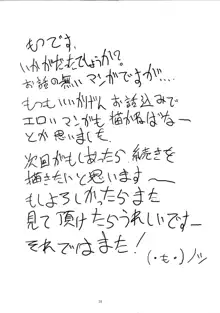 もっです。
いかがだたでしょうか?
お話の無いマンガですが…。
もっといいかげんお話込みで
エロいマンガも描かねばなー
とか思いました
次回がもしあったら 続きを
描きたいと思います〜
もしよろしかったらまた
見て頂けたらうれしいですー
それではまた!
(・も・)ノシ